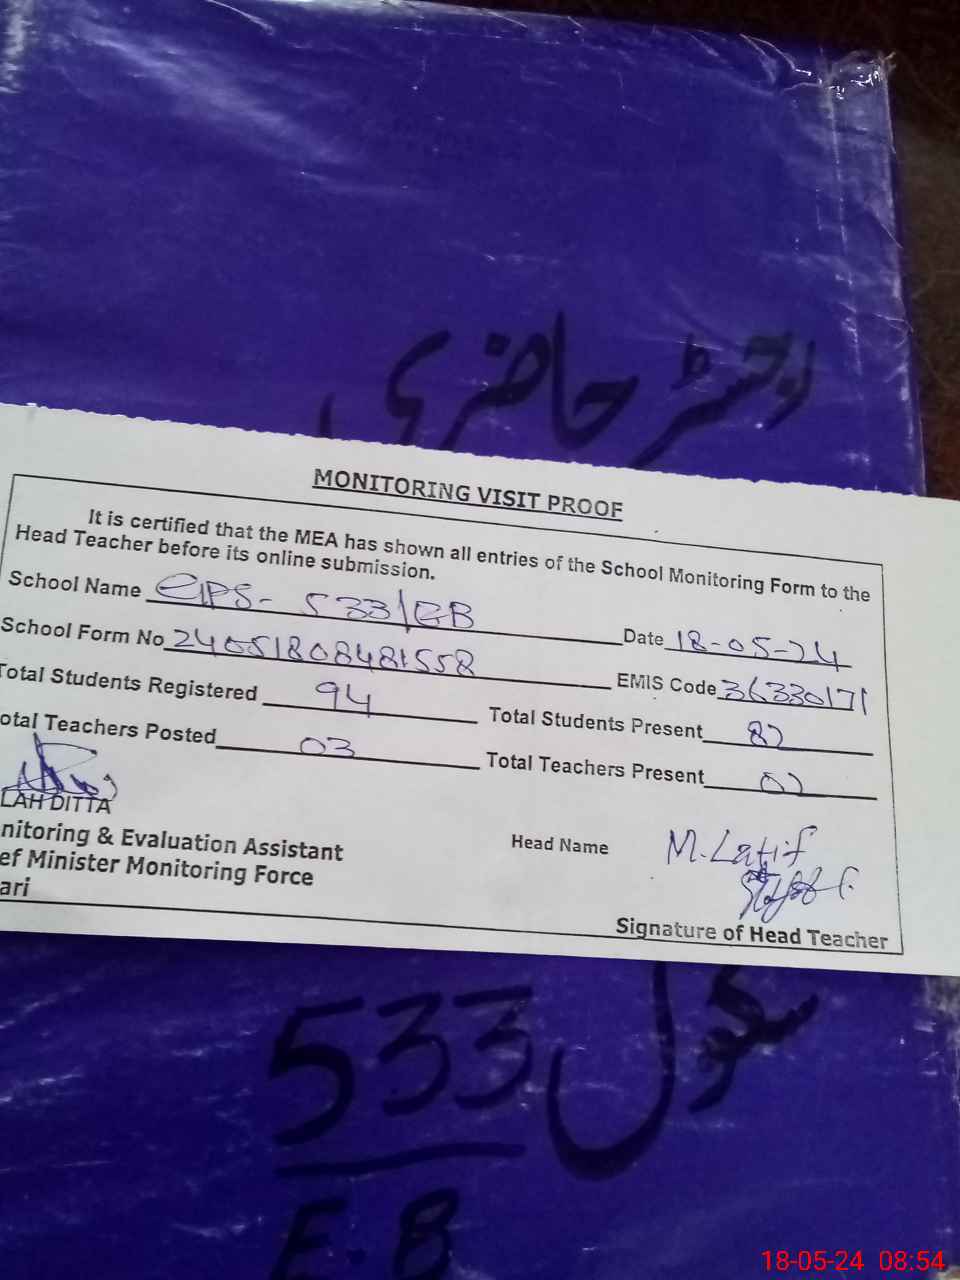 رجسٹر حاضری
MONITORING VISIT PROOF
It is certified that the MEA has shown all entries of the School Monitoring Form to the
Head Teacher before its online submission.
School Name GPS- 533/EB Date 18-05-24
School Form No 24051808481558 EMIS Code 36330171
Total Students Registered 94 Total Students Present 82
otal Teachers Posted 03 Total Teachers Present 02
LAH DITTA
nitoring & Evaluation Assistant Head Name M. Latif
ef Minister Monitoring Force
ari
Signature of Head Teacher
سکول 533
E.B
18-05-24 08:54